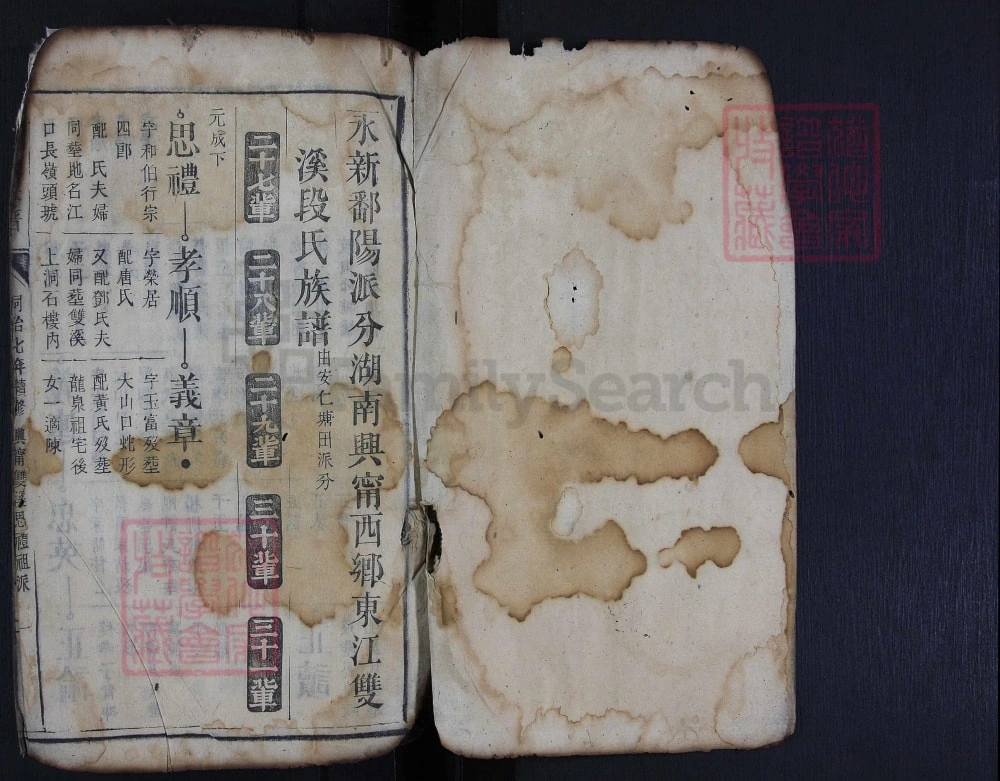 永新鄱陽派分湖南興甯西鄉東江雙
溪段氏族譜由安仁塘田派分
二十七輩
二十八輩
二十九輩
三十輩
三十一輩
元成下
思禮
字和伯行宗
四郎
配 氏夫婦
同塟地名江
口長嶺頭號
孝順
字榮居
配唐氏
又配鄧氏夫
婦同塟雙溪
上洞石樓內
義章
字玉富歿塟
大山口蛇形
配黃氏歿塟
龍泉祖宅後
女一適陳
同治七年續修 興甯雙溪思禮祖派 一
FamilySearch